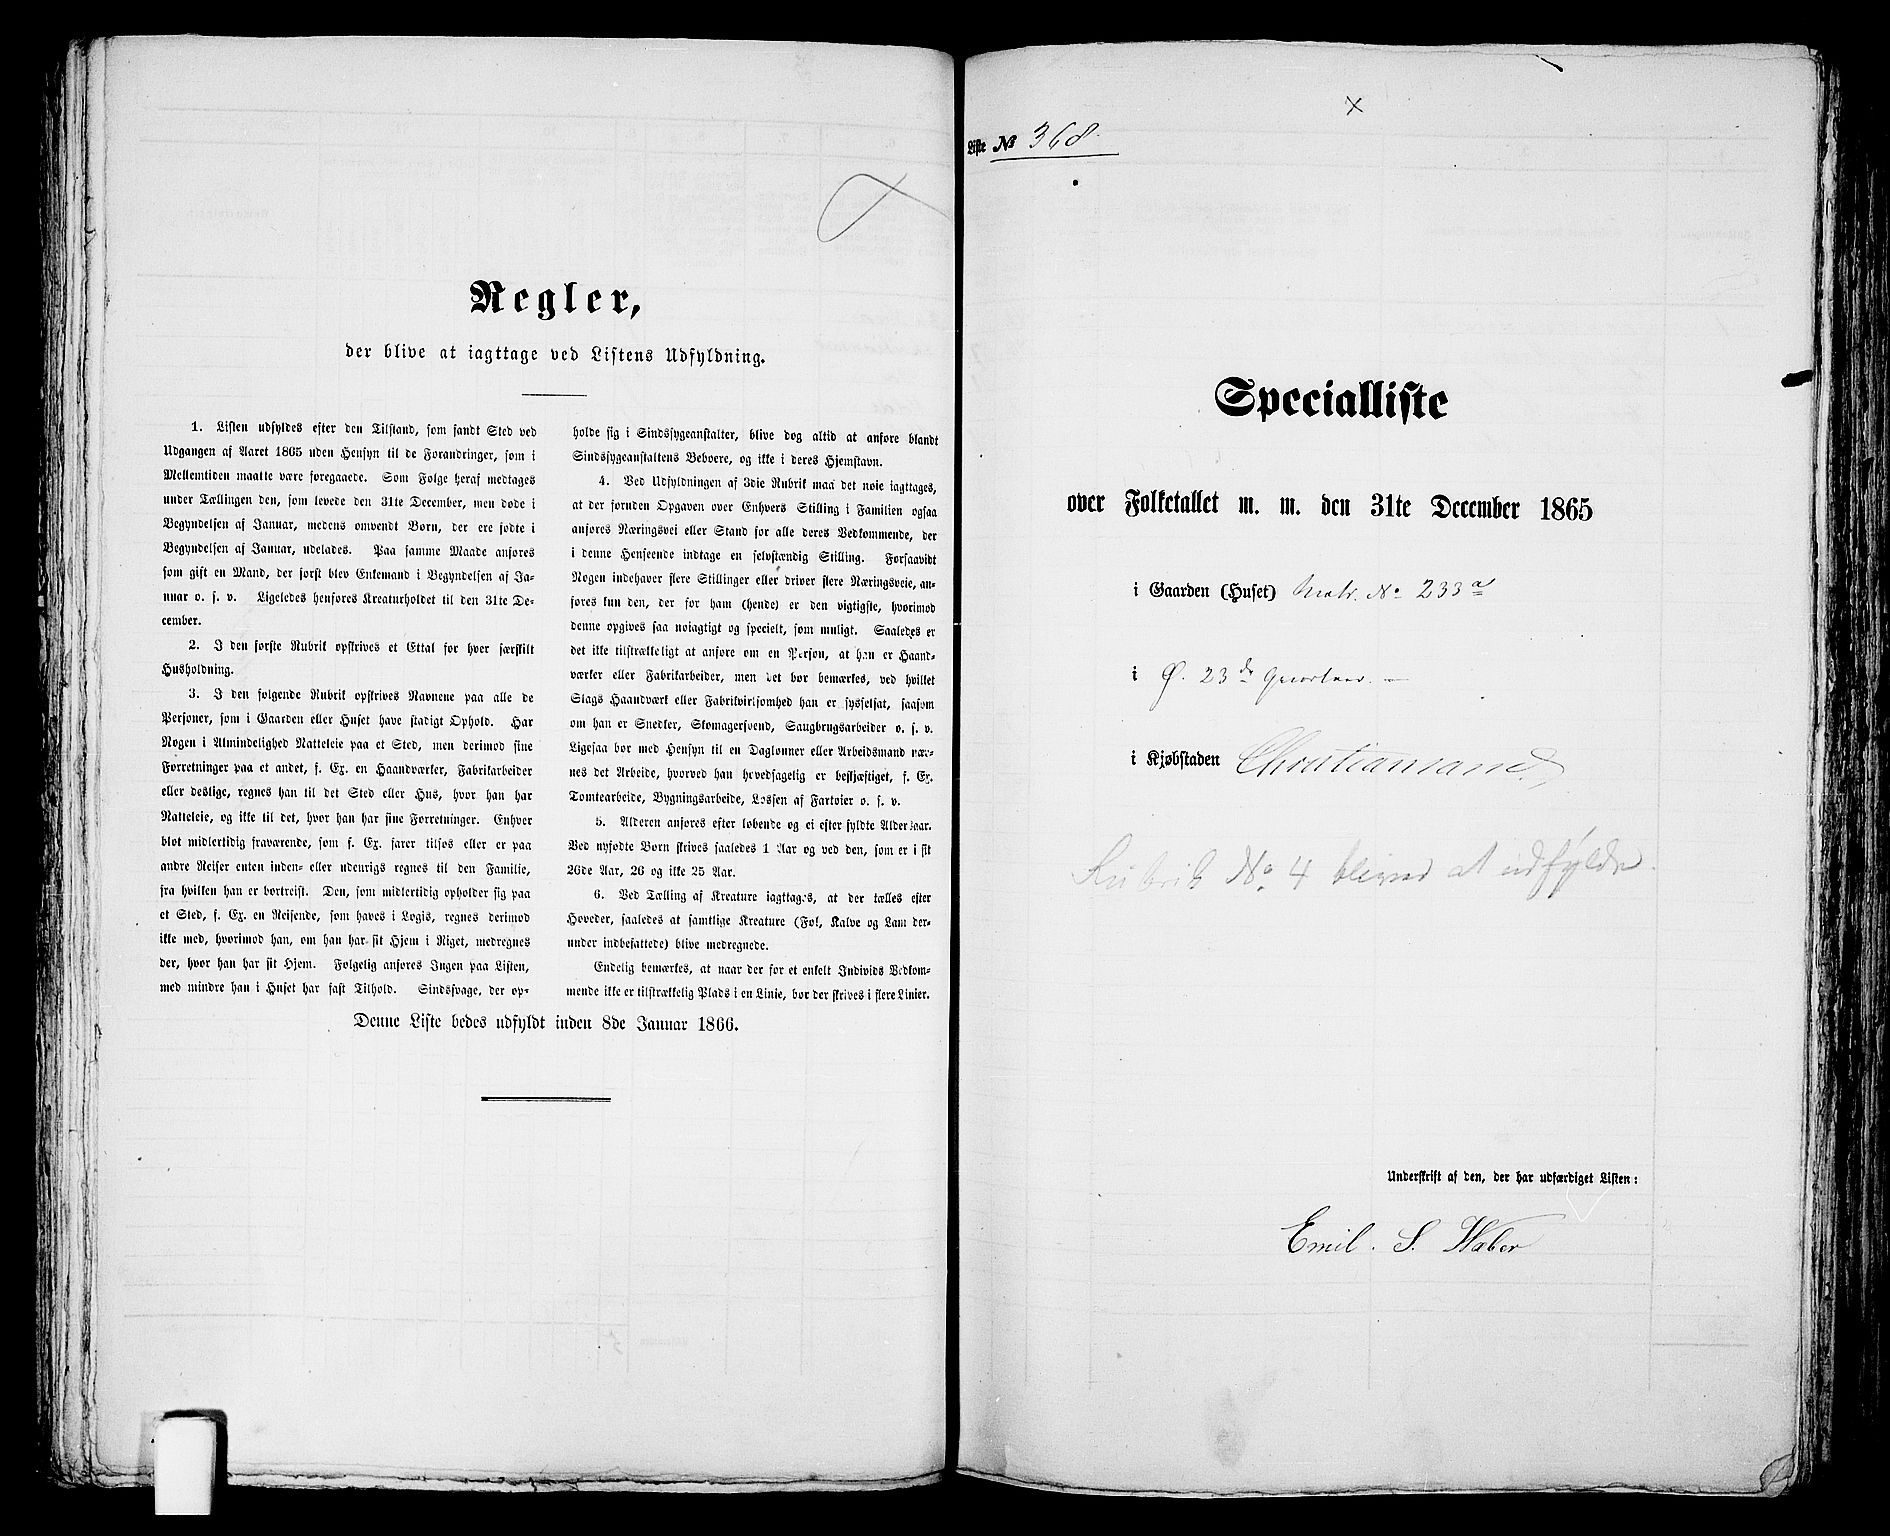 Regler,
der blive at iagttage ved Listens Udfyldning.
1. Listen udfyldes efter den Tilstand, som fandt Sted ved
Udgangen af Aaret 1865 uden Hensyn til de Forandringer, som i
Mellemtiden maatte være foregaaede. Som Følge heraf medtages
under Tællingen den, som levede den 31te December, men døde i
Begyndelsen af Januar, medens omvendt Børn, der ere fødte i
Begyndelsen af Januar, udelades. Paa samme Maade anføres
som gift en Mand, der først blev Enkemand i Begyndelsen af Ja-
nuar o. s. v. Ligeledes henføres Kreaturholdet til den 31te De-
cember.
2. I den første Rubrik opskrives et Ettal for hver særskilt
Husholdning.
3. I den følgende Rubrik opskrives Navnene paa alle de
Personer, som i Gaarden eller Huset have stadigt Ophold. Har
Nogen i Almindelighed Natteleie paa et Sted, men derimod sine
Forretninger paa et andet, f. Ex. en Haandværker, Fabrikarbeider
eller deslige, regnes han til det Sted eller Hus, hvor han har
Natteleie, og ikke til det, hvor han har sine Forretninger. Enhver
blot midlertidig fraværende, som f. Ex. farer tilsøs eller er paa
andre Reiser enten inden- eller udenrigs regnes til den Familie,
fra hvilken han er bortreist. Den, som midlertidig opholder sig paa
et Sted, f. Ex. en Reisende, som haves i Logis, regnes derimod
ikke med, hvorimod han, om han har sit Hjem i Riget, medregnes
der, hvor han har sit Hjem. Følgelig anføres Ingen paa Listen,
med mindre han i Huset har fast Tilhold. Sindssvage, der op-
holde sig i Sindssygeanstalter, blive dog altid at anføre blandt
Sindssygeanstaltens Beboere, og ikke i deres Hjemstavn.
4. Ved Udfyldningen af 3die Rubrik maa det nøie iagttages,
at der foruden Opgaven over Enhvers Stilling i Familien ogsaa
anføres Næringsvei eller Stand for alle deres Vedkommende, der
i denne Henseende indtage en selvstændig Stilling. Forsaavidt
Nogen indehaver flere Stillinger eller driver flere Næringsveie, an-
føres kun den, der for ham (hende) er den vigtigste, hvorimod
denne opgives saa nøiagtigt og specielt, som muligt. Saaledes er
det ikke tilstrækkeligt at anføre om en Person, at han er Haand-
værker eller Fabrikarbeider, men det bør bemærkes, ved hvilket
Slags Haandværk eller Fabrikvirksomhed han er sysselsat, saasom
om han er Snedker, Skomagersvend, Saugbrugsarbeider o. s. v.
Ligesaa bør med Hensyn til en Dagløner eller Arbeidsmand næv-
nes det Arbeide, hvorved han hovedsagelig er beskjæftiget, f. Ex.
Tomtearbeide, Bygningsarbeide, Lossen af Fartøier o. s. v.
5. Alderen anføres efter løbende og ei efter fyldte Aldersaar.
Ved nyfødte Børn skrives saaledes 1 Aar og ved den, som er i sit
26de Aar, 26 og ikke 25 Aar.
6. Ved Tælling af Kreature iagttages, at der tælles efter
Hoveder, saaledes at samtlige Kreature (Føl, Kalve og Lam der-
under indbefattede) blive medregnede.
Endelig bemærkes, at naar der for et enkelt Individs Vedkom-
mende ikke er tilstrækkelig Plads i en Linie, bør der skrives i flere Linier.
Denne Liste bedes udfyldt inden 8de Januar 1866.
Liste No 368.
Specialliste
over Folketallet m. m. den 31te December 1865
i Gaarden (Huset) Matr. No 233a
i Ø. 23de Qvarteer.
i Kjøbstaden Christiansand
Rubrik No 4 bliver at udfylde.
Underskrift af den, der har udfærdiget Listen:
Emil. S.